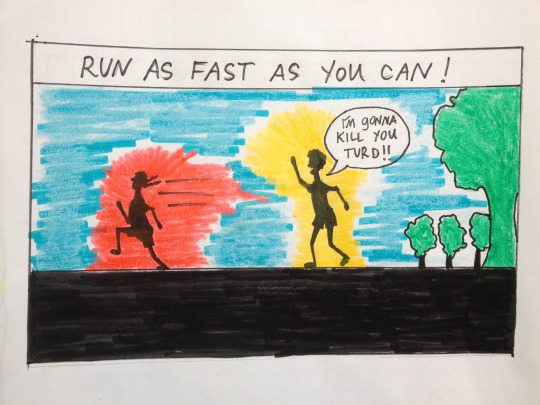 RUN AS FAST AS YOU CAN!
I'M GONNA
KILL YOU
TURD!!